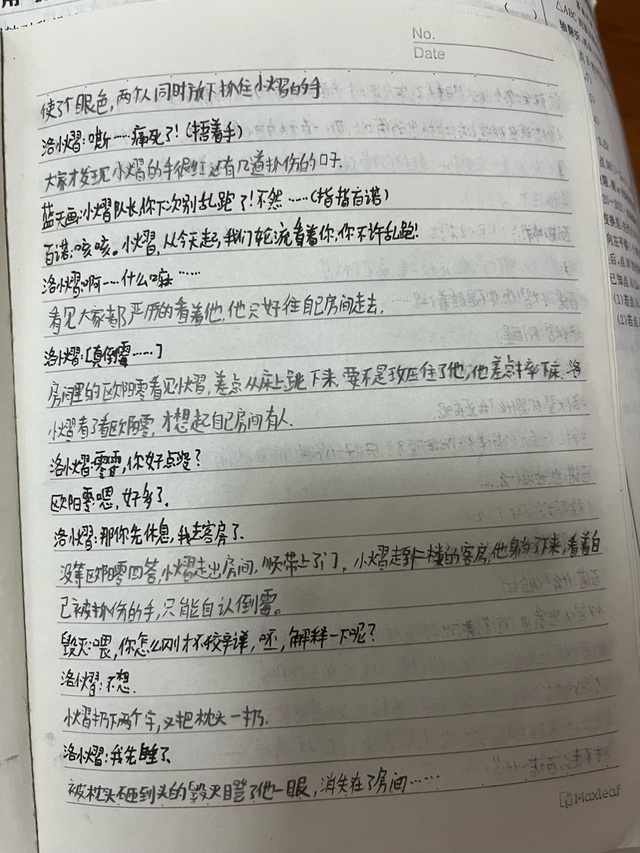 No.
Date
使了个眼色，两个人同时放下抓住小熠的手
洛小熠：嘶……痛死了！(捂着手)
大家才发现小熠的手很红还有几道抓伤的口子
蓝天画：小熠队长你下次别乱跑了！不然……(指指百诺)
百诺：咳咳。小熠，从今天起，我们轮流看着你，你不许乱跑！
洛小熠：啊……什么嘛……
看见大家都严厉的看着他，他只好往自己房间走去，
洛小熠：[真倒霉……]
房间里的欧阳零看见小熠，差点从床上跳下来，要不是玫压住了他，他差点摔下床。洛
小熠看了看欧阳零，才想起自己房间有人。
洛小熠：零零，你好点没？
欧阳零：嗯，好多了。
洛小熠：那你先休息，我去客房了。
没等欧阳零回答，小熠走出房间，顺带上了门，小熠走到楼的客房，他躺了下来，看着自
己被抓伤的手，只能自认倒霉。
毁灭：喂，你怎么刚才不狡辩，呸，解释一下呢？
洛小熠：不想。
小熠扔下两个字，又把枕头一扔。
洛小熠：我先睡了
被枕头砸到头的毁灭瞪了他一眼，消失在了房间……
Maxleaf
△ABC
(1)若点
(2)若点